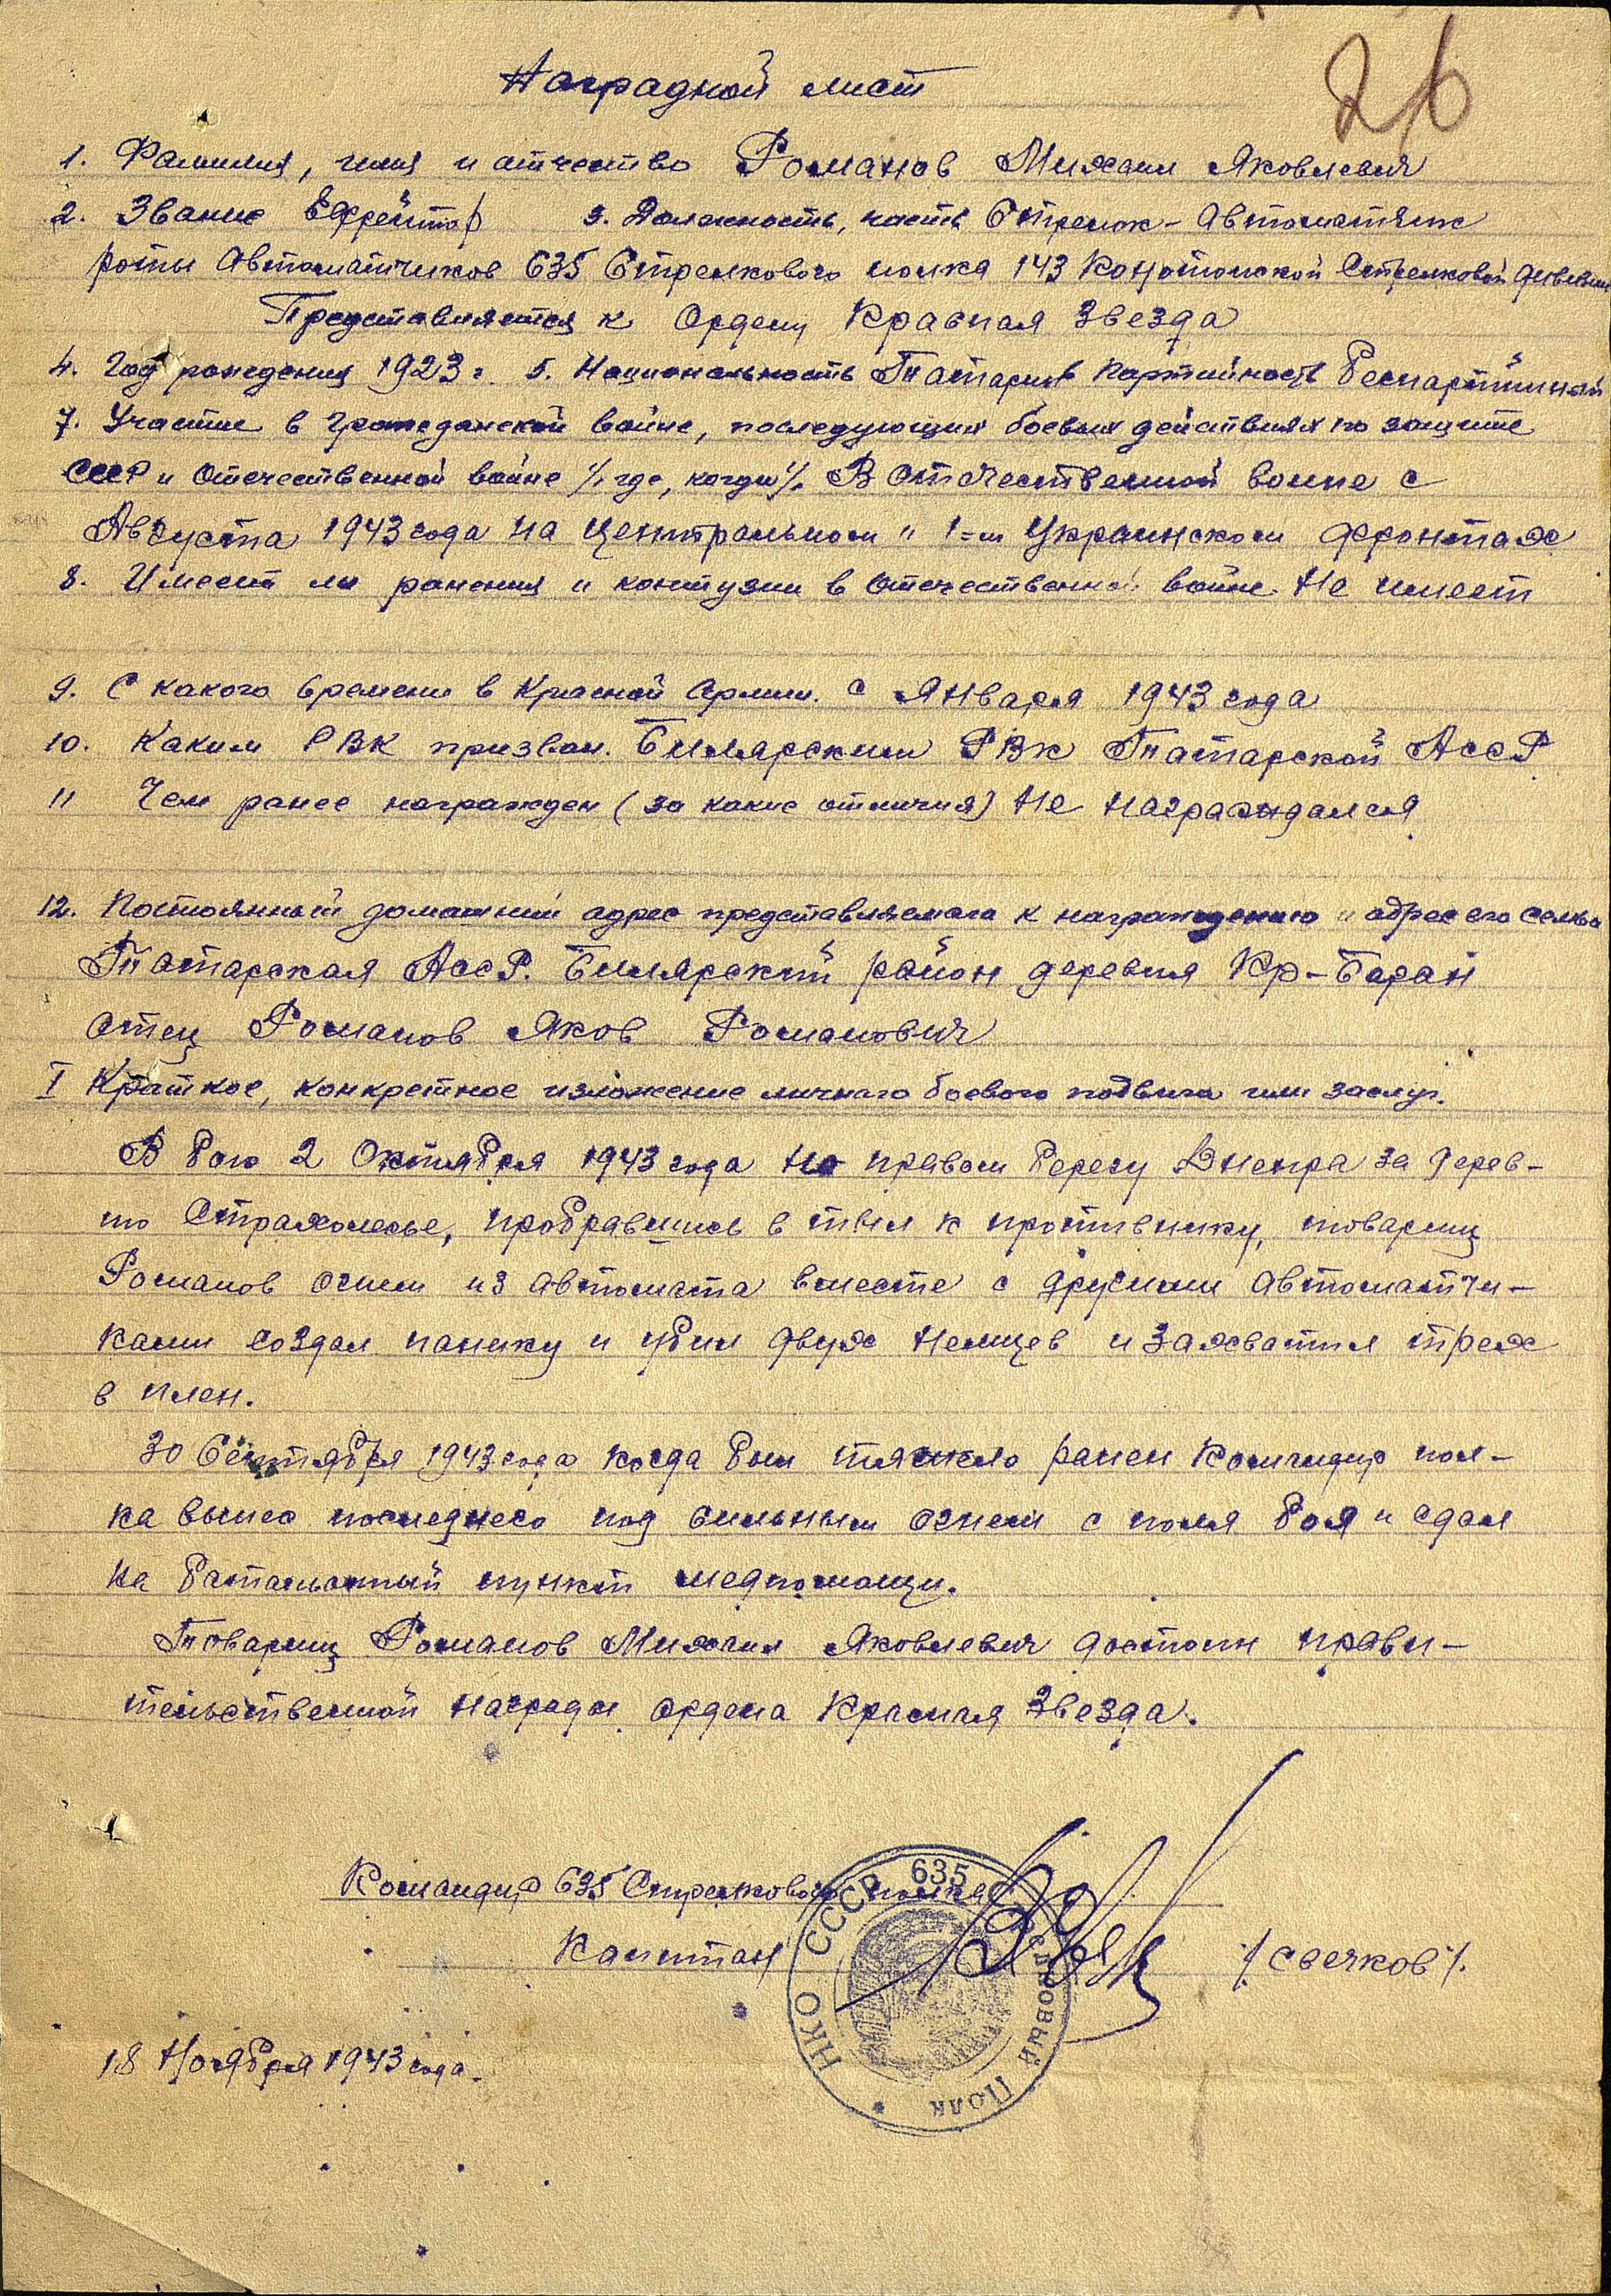 26
Наградной лист
1. Фамилия, имя и отчество Романов Михаил Яковлевич
2. Звание Ефрейтор 3. Должность, часть Стрелок-Автоматчик
роты Автоматчиков 635 Стрелкового полка 143 Конотопской Стрелковой дивизии
Представляется к Ордену Красная Звезда
4. Год рождения 1923 г. 5. Национальность Татарин 6 Партийность Беспартийный
7. Участие в гражданской войне, последующих боевых действиях по защите
СССР и Отечественной войне /, где, когда /. В Отечественной войне с
Августа 1943 года на Центральном и 1=м Украинском фронтах
8. Имеет ли ранения и контузии в Отечественной войне Не имеет
9. С какого времени в Красной Армии. с Января 1943 года
10. Каким РВК призван. Билярским РВК Татарской АССР
11 Чем ранее награжден (за какие отличия) Не награждался
12. Постоянный домашний адрес представляемого к награждению и адрес его семьи
Татарская АССР. Билярский район деревня Кр-Баран
Отец Романов Яков Романович
I Краткое, конкретное изложение личного боевого подвига или заслуг.
В бою 2 Октября 1943 года на правом берегу Днепра за дерев-
ню Страхолесье, пробравшись в тыл к противнику, товарищ
Романов огнем из автомата вместе с другими автоматчи-
ками создал панику и убил двух немцев и захватил трех
в плен.
30 Сентября 1943 года когда был тяжело ранен Командир пол-
ка вынес последнего под сильным огнем с поля боя и сдал
на батальонный пункт медпомощи.
Товарищ Романов Михаил Яковлевич достоин прави-
тельственной награды ордена Красная Звезда.
Командир 635 Стрелкового полка
Капитан /Свечков/.
НКО СССР 635 Стрелковый Полк
18 Ноября 1943 года.